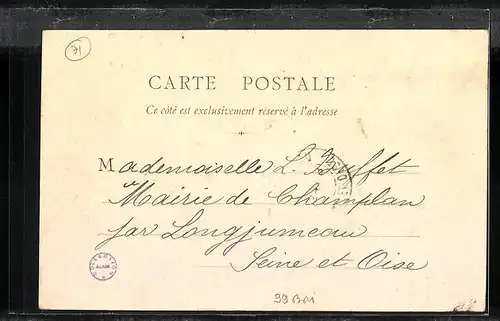 71
CARTE POSTALE
Ce côté est exclusivement réservé à l'adresse
Mademoiselle L. Buffet
Mairie de Champlan
par Longjumeau
Seine et Oise
COLLECTION
99 Boi